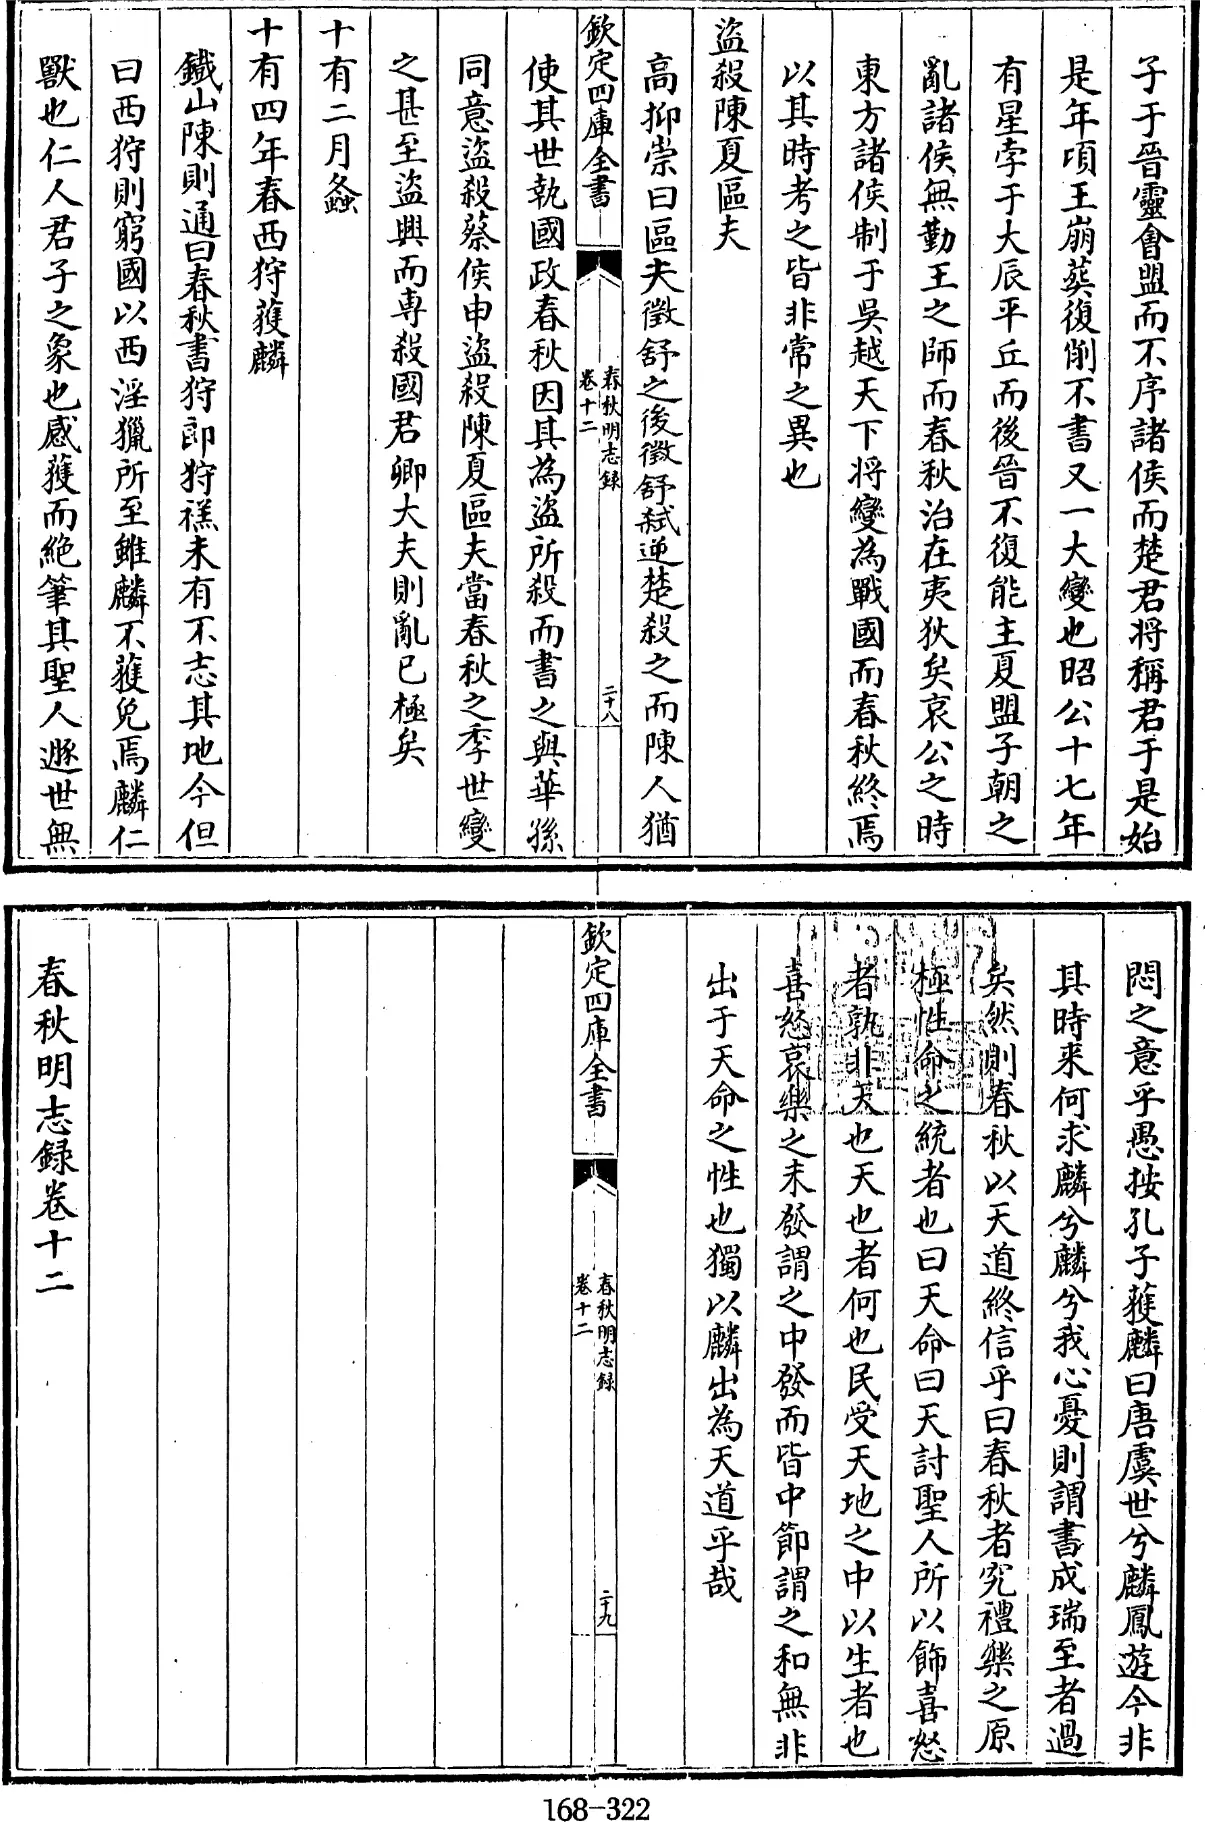 子于晉靈會盟而不序諸侯而楚君将稱君于是始
是年頃王崩葬復削不書又一大變也昭公十七年
有星孛于大辰平丘而後晉不復能主夏盟子朝之
亂諸侯無勤王之師而春秋治在夷狄矣哀公之時
東方諸侯制于吳越天下将變為戰國而春秋終焉
以其時考之皆非常之異也
盜殺陳夏區夫
高抑崇曰區夫徵舒之後徵舒弑逆楚殺之而陳人猶
欽定四庫全書
春秋明志録
卷十二
二十八
使其世執國政春秋因其為盜所殺而書之與華孫
同意盜殺蔡侯申盜殺陳夏區夫當春秋之季世變
之甚至盜興而專殺國君卿大夫則亂已極矣
十有二月螽
十有四年春西狩獲麟
鐵山陳則通曰春秋書狩郎狩禚未有不志其地今但
曰西狩則窮國以西淫獵所至雖麟不獲免焉麟仁
獸也仁人君子之象也感獲而絶筆其聖人遯世無
悶之意乎愚按孔子獲麟曰唐虞世兮麟鳳遊今非
其時来何求麟兮麟兮我心憂則謂書成瑞至者過
矣然則春秋以天道終信乎曰春秋者究禮樂之原
極性命之統者也曰天命曰天討聖人所以飾喜怒
者孰非天也天也者何也民受天地之中以生者也
喜怒哀樂之未發謂之中發而皆中節謂之和無非
出于天命之性也獨以麟出為天道乎哉
欽定四庫全書
春秋明志録
卷十二
二十九
春秋明志録卷十二
168-322